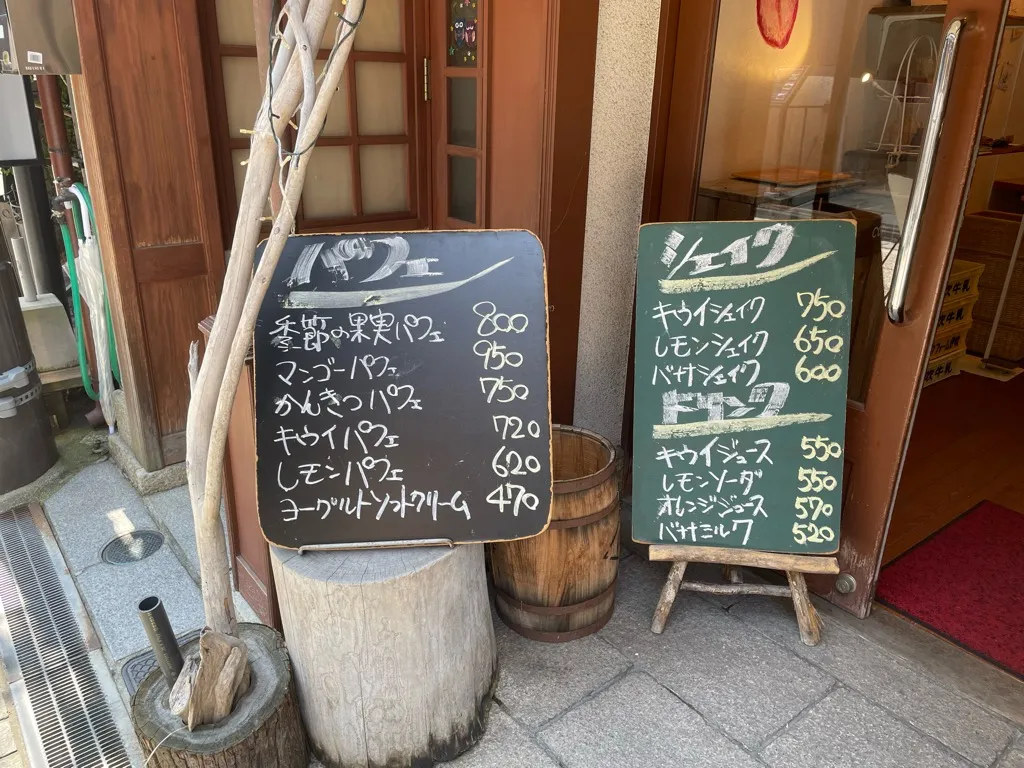 パフェ
季節の果実パフェ 800
マンゴーパフェ 950
かんきつパフェ 750
キウイパフェ 720
レモンパフェ 620
ヨーグルトソフトクリーム 470
シェイク
キウイシェイク 750
レモンシェイク 650
バナナシェイク 600
ドリンク
キウイジュース 550
レモンソーダ 550
オレンジジュース 570
バナナミルク 520